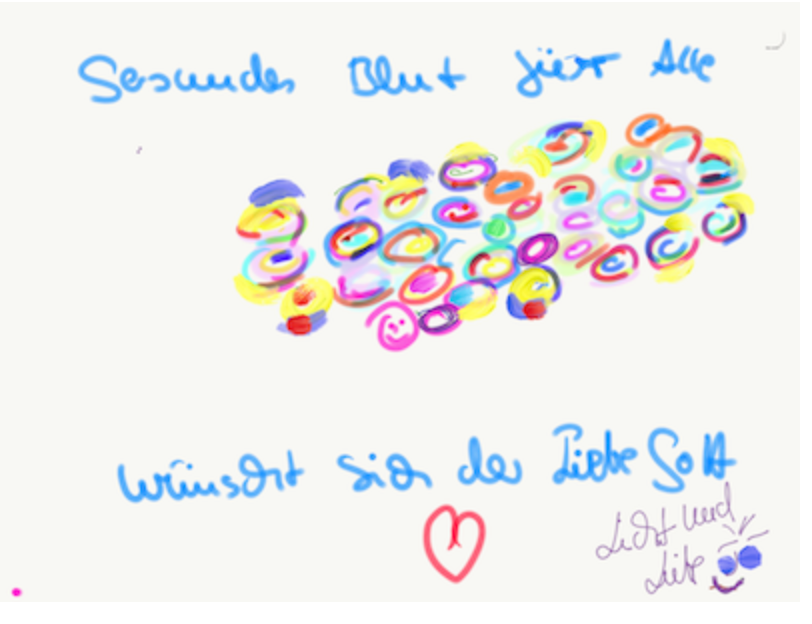 Gesundes Blut für Alle
wünscht sich der Liebe Gott
Licht und
Liebe